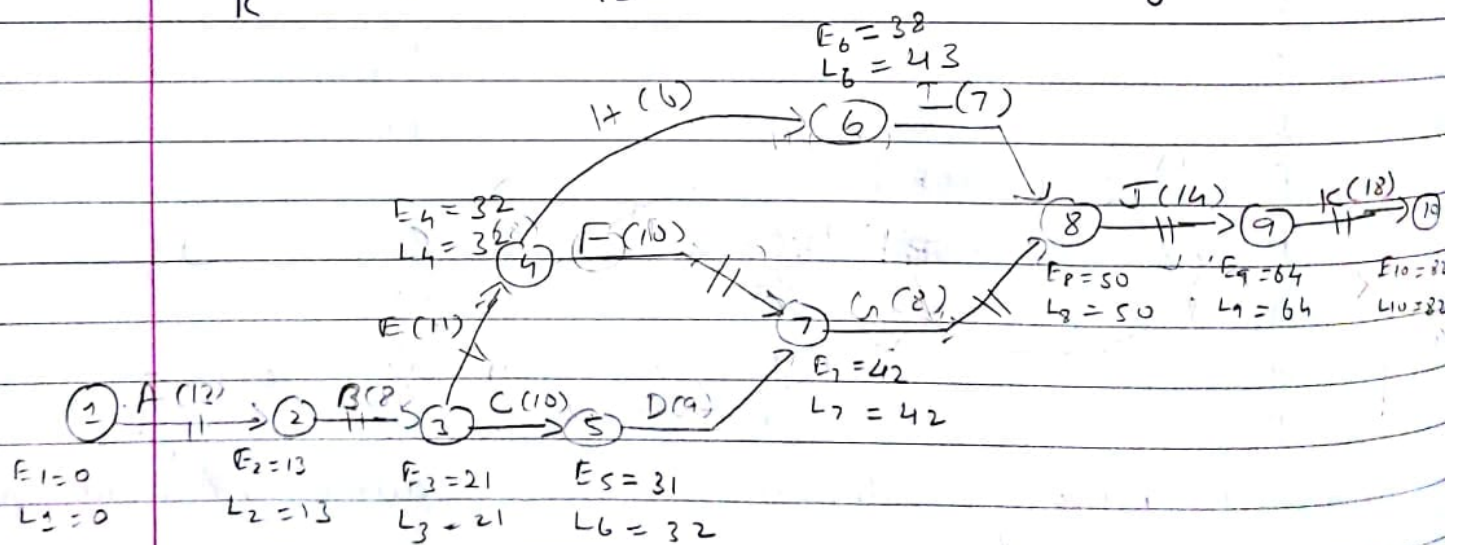 K
E6 = 38
L6 = 43
H (6)
6
I (7)
E4 = 32
L4 = 32
4
F (10)
8
J (14)
9
K (18)
10
E8 = 50
L8 = 50
E9 = 64
L9 = 64
E10 = 82
L10 = 82
E (11)
7
G (8)
E7 = 42
L7 = 42
1
A (13)
2
B (8
3
C (10)
5
D (9)
E1 = 0
L1 = 0
E2 = 13
L2 = 13
E3 = 21
L3 = 21
E5 = 31
L6 = 32